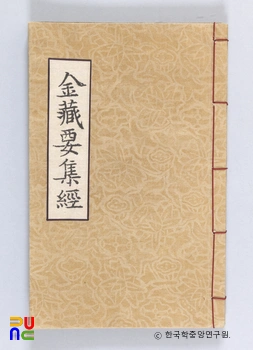 金藏要集經
PUNC
© 한국학중앙연구원.